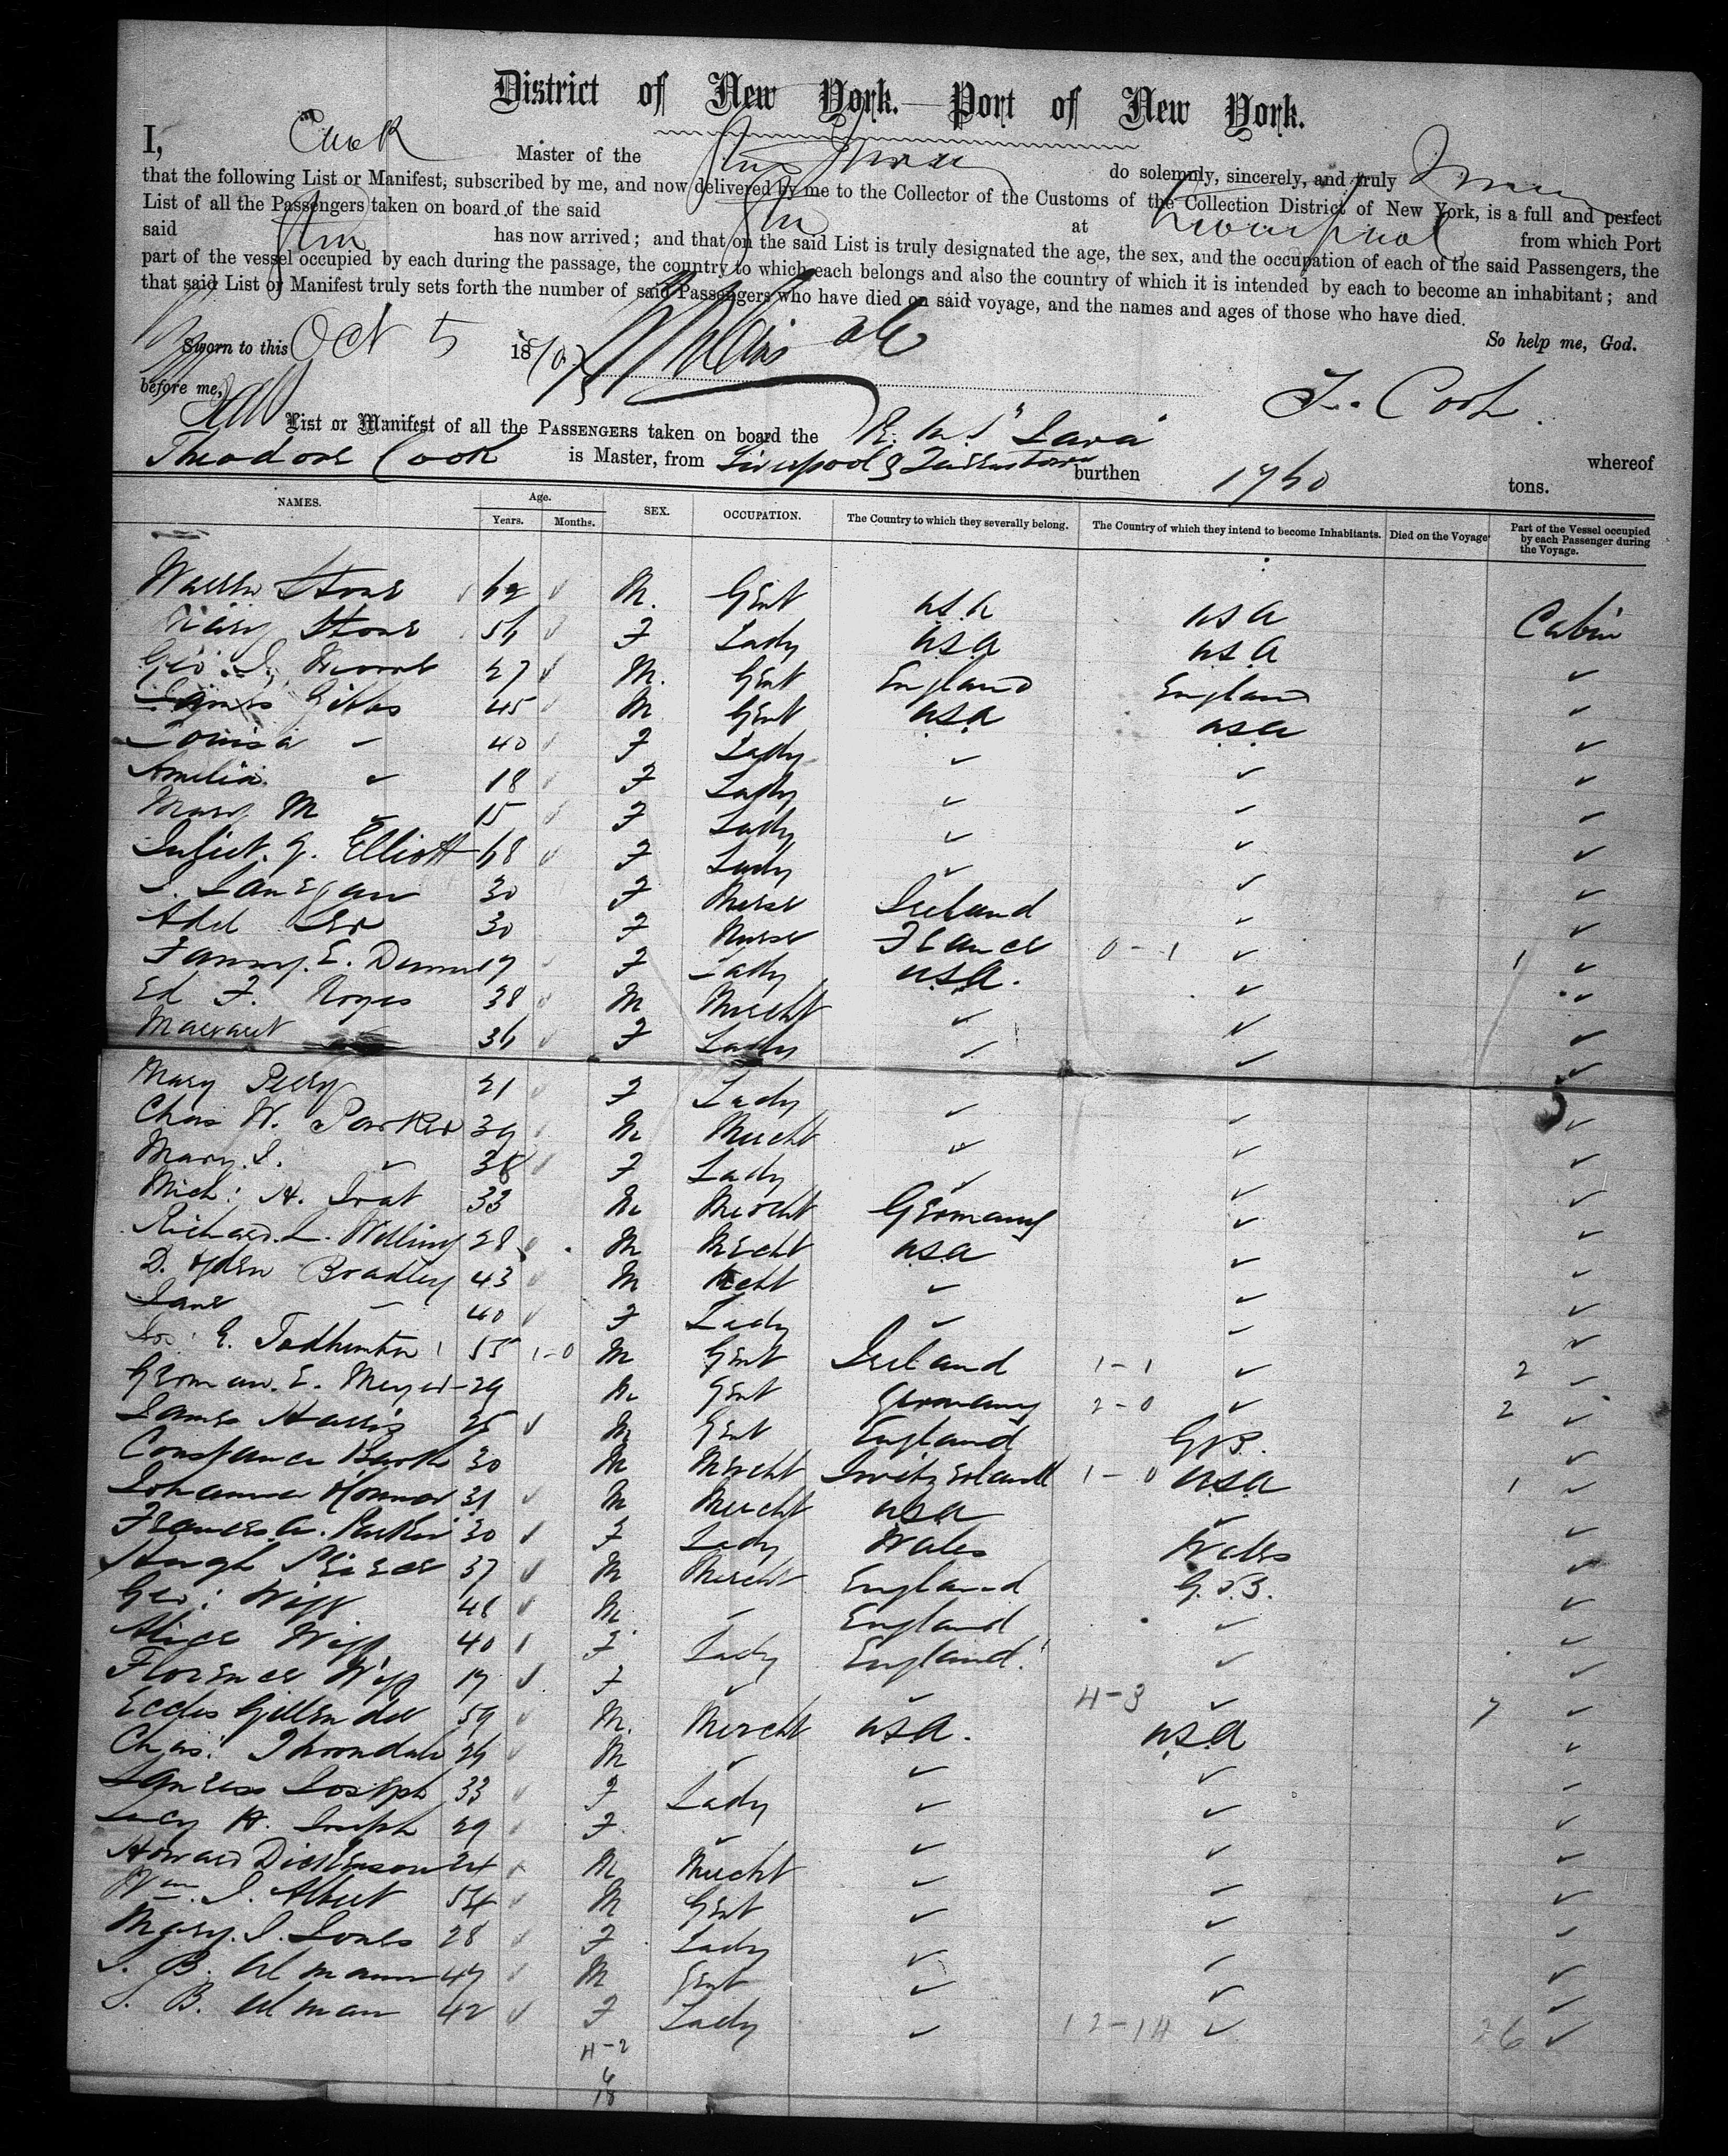 District of New York.—Port of New York.
I, Cook Master of the Str Java do solemnly, sincerely, and truly swear
that the following List or Manifest, subscribed by me, and now delivered by me to the Collector of the Customs of the Collection District of New York, is a full and perfect
List of all the Passengers taken on board of the said Str at Liverpool from which Port
said Str has now arrived; and that on the said List is truly designated the age, the sex, and the occupation of each of the said Passengers, the
part of the vessel occupied by each during the passage, the country to which each belongs and also the country of which it is intended by each to become an inhabitant; and
that said List or Manifest truly sets forth the number of said Passengers who have died on said voyage, and the names and ages of those who have died.
So help me, God.
Sworn to this Oct 5 18
before me,
T. Cook
List or Manifest of all the PASSENGERS taken on board the R.M.S "Java" whereof
Theodore Cook is Master, from Liverpool & Queenstown burthen 1760 tons.
NAMES. Age. Years. Months. SEX. OCCUPATION. The Country to which they severally belong. The Country of which they intend to become Inhabitants. Died on the Voyage Part of the Vessel occupied by each Passenger during the Voyage.
Warren Stone 62 M. Gent U.S.A U.S.A Cabin
Mary Stone 56 F Lady U.S.A U.S.A ✓
Geo. 27 M. Gent England England ✓
James Gibbs 45 M Gent U.S.A U.S.A ✓
Louisa " 40 F Lady ✓ ✓ ✓
Amelia ✓ 18 F Lady ✓ ✓ ✓
Mary M ✓ 15 F Lady ✓ ✓ ✓
Juliet. G. Elliott 68 F Lady ✓ ✓ ✓
J. Lanegan 30 F Nurse Ireland ✓ ✓
Adel 30 F Nurse France 0-1 ✓ 1 ✓
Fanny. E. 19 F Lady U.S.A. ✓ ✓
Ed F. Noyes 38 M Mercht ✓ ✓ ✓
Margaret 36 F Lady ✓ ✓ ✓
Mary Perry 21 F Lady ✓ ✓ ✓
Chas W. Parker 39 M Mercht ✓ ✓ ✓
Mary. J. ✓ 38 F Lady ✓ ✓ ✓
Mich: H. 33 M Mercht Germany ✓ ✓
Richard. L. Willing 28 M Mercht U.S.A ✓ ✓
D. Ogden Bradley 43 M Mercht ✓ ✓ ✓
Jane — 40 F Lady ✓ ✓ ✓
E. Todhunter 55 1-0 M Gent Ireland 1-1 ✓ 2 ✓
German. E. Meyer 29 M Gent Germany 2-0 ✓ 2 ✓
James Harris 25 M Gent England G.B. ✓
30 M Mercht Switzerland 1-0 U.S.A 1 ✓
31 M Mercht U.S.A ✓ ✓
30 F Lady Wales Wales ✓
Hugh Pierce 37 M Mercht England G.B. ✓
Geo: 48 M ✓ England ✓ ✓
Alice 40 F Lady England ✓ ✓
Florence 17 F ✓ ✓ 4-3 ✓ 7 ✓
Eccles Gillender 59 M. Mercht U.S.A. U.S.A ✓
Chas: 26 M ✓ ✓ ✓ ✓
Joseph 33 F Lady ✓ ✓ ✓
Lucy H. Joseph 29 F ✓ ✓ ✓ ✓
Howard Dickenson 24 M Mercht ✓ ✓ ✓
Wm. J. Albert 54 M Gent ✓ ✓ ✓
Mary. J. Jones 28 F Lady ✓ ✓ ✓
J. B. Ulmann 47 M Gent ✓ ✓ ✓
S. B. Ulman 42 F Lady ✓ 12-14 ✓ 26 ✓
4-2
6
18